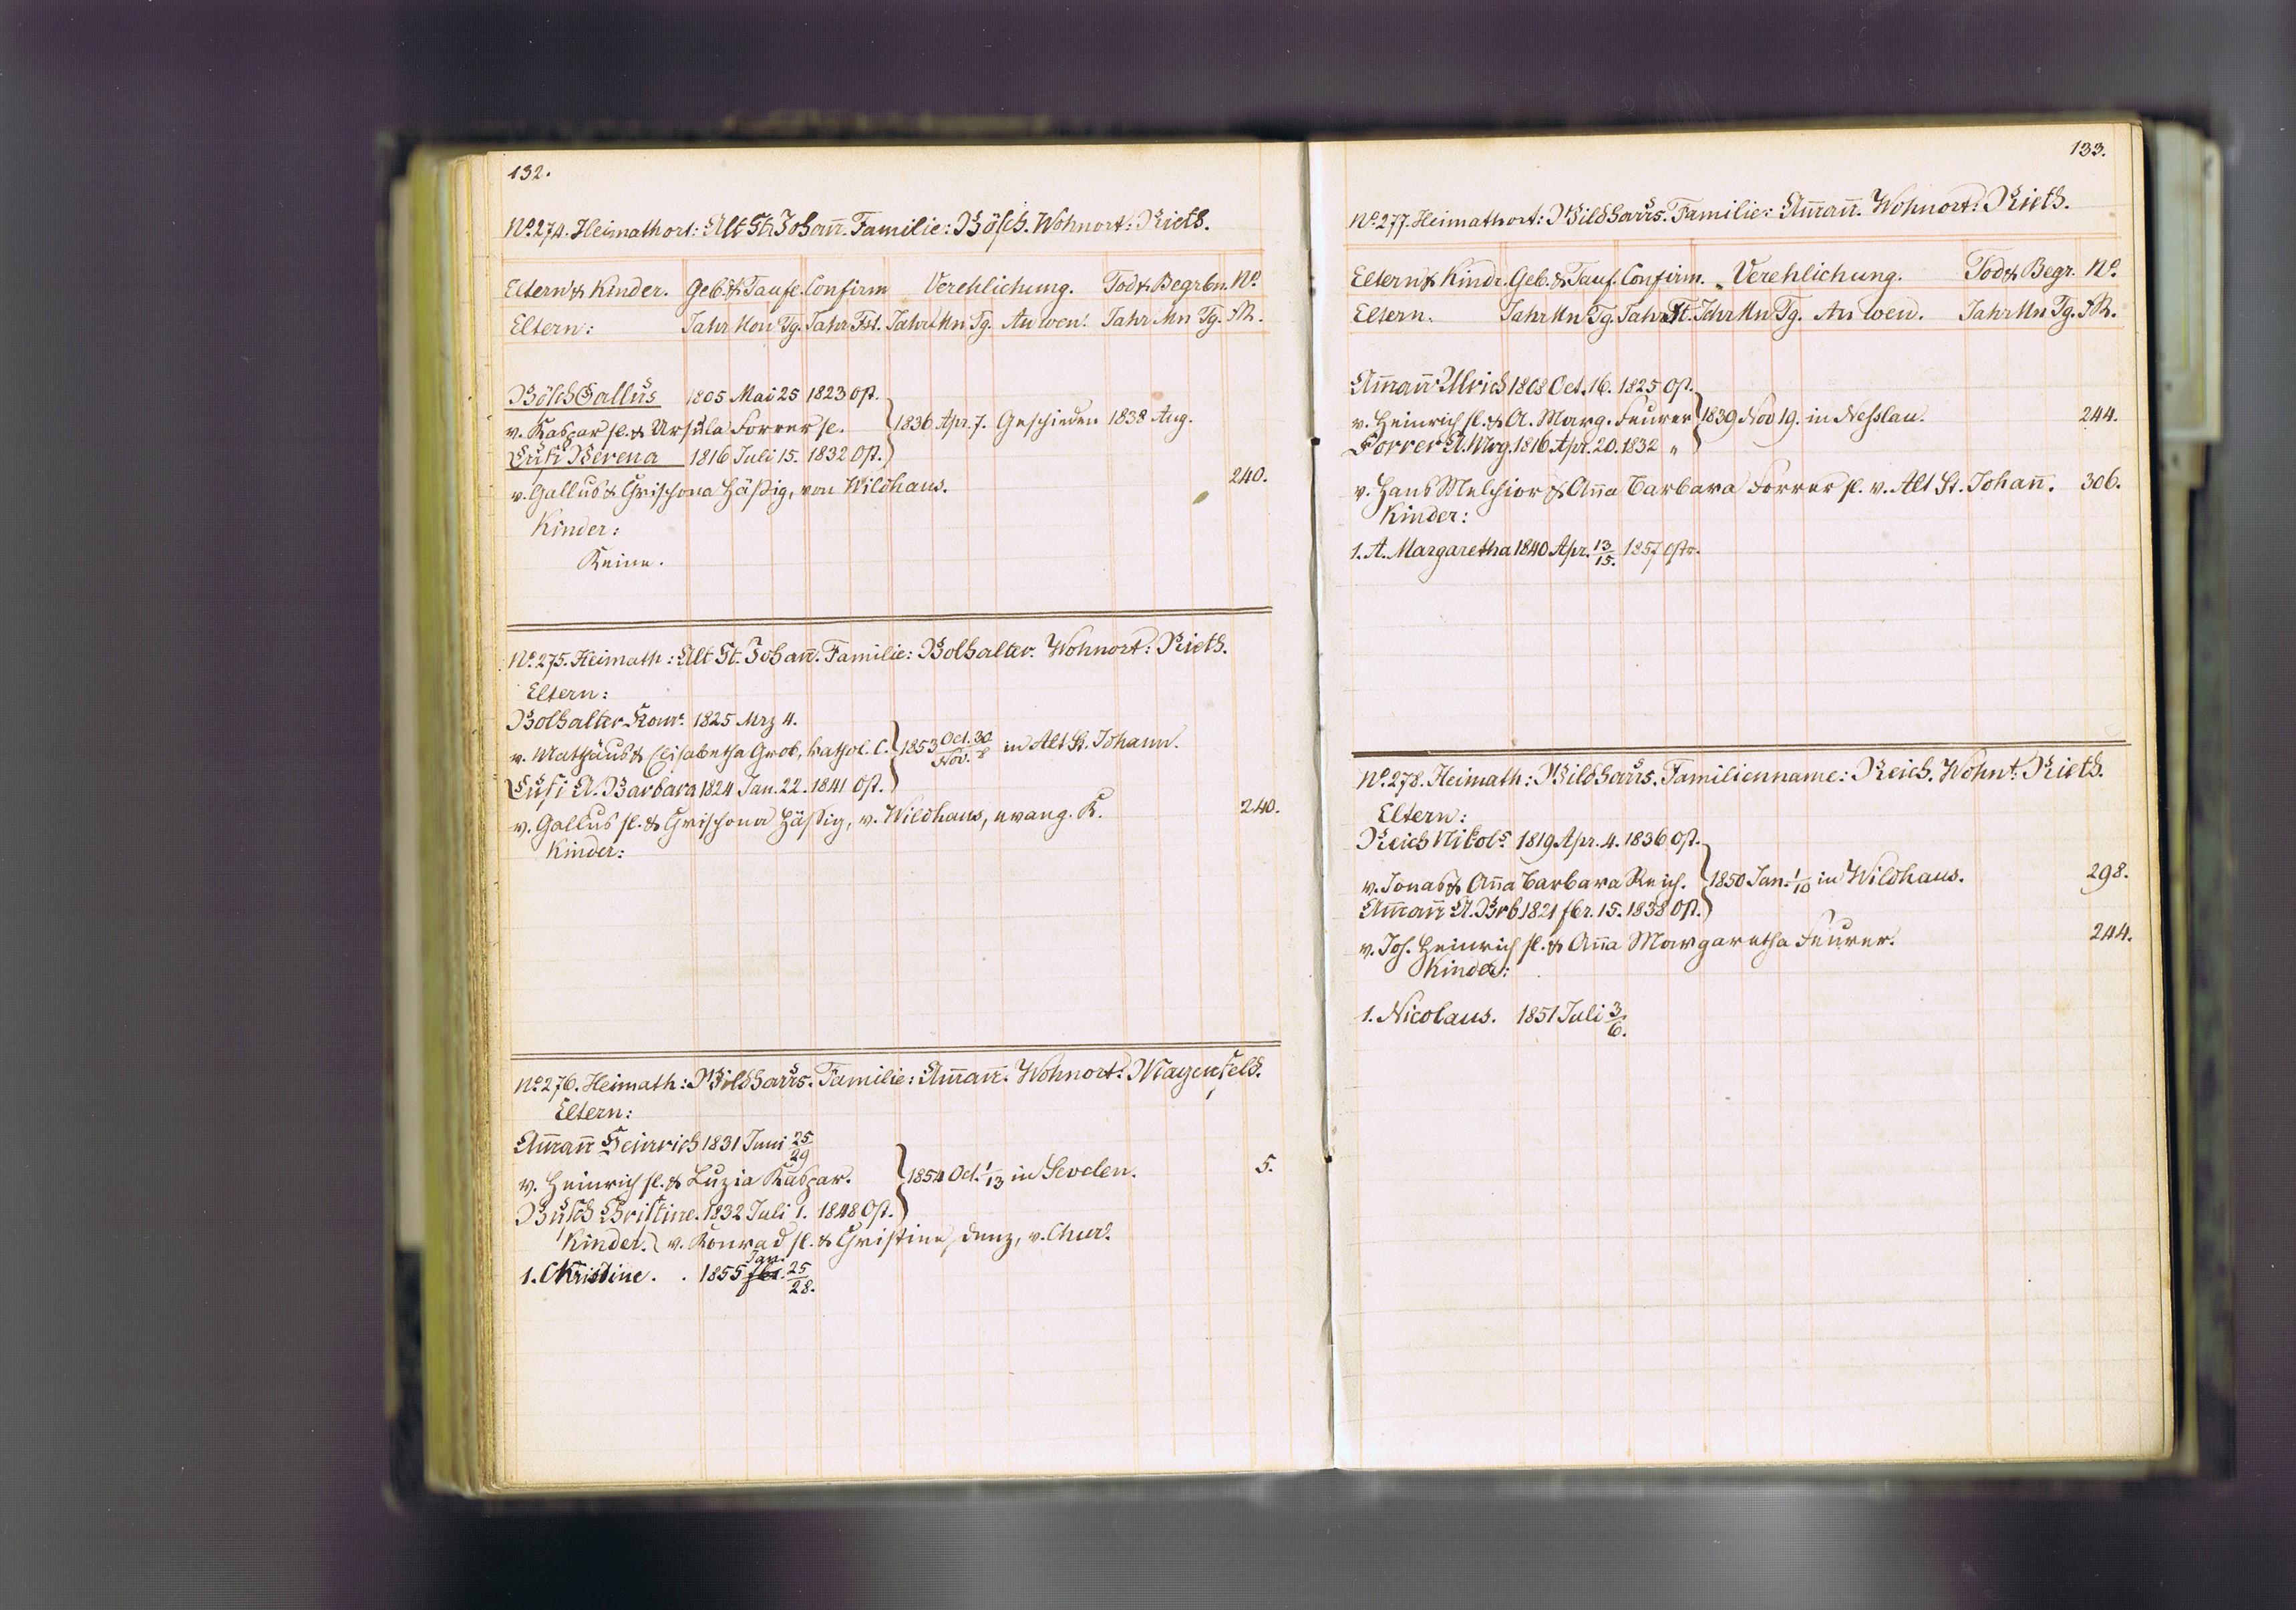 132.
No. 274. Heimathort: Alt St. Johañ. Familie: Bösch. Wohnort: Rieth.
Eltern & Kinder. Geb. & Taufe. Confirm Verehlichung. Tod & Begrbn. No.
Eltern: Jahr Mon Tg. Jahr Fst. Jahr Mn Tg. An wen. Jahr Mn Tg. R.
Bösch Gallus 1805 Mai 25 1823 Ost.
v. Kaspar sl. & Ursula Forrer sl. 1836 Apr. 7. Geschieden 1838 Aug.
Verena 1816 Juli 15. 1832 Ost.
v. Gallus & Grischona Häßig, von Wildhaus. 240.
Kinder:
Keine.
No. 275. Heimath: Alt St. Johañ. Familie: Bolhalter. Wohnort: Rieth.
Eltern:
Bolhalter Konr. 1825 Mrz 4.
v. Mathäus & Elisabetha Grob, kathol. C. 1853 Oct. 30 / Nov. 8 in Alt St. Johann.
A. Barbara 1824 Jan. 22. 1841 Ost.
v. Gallus sl. & Grischona Häßig, v. Wildhaus, evang. K. 240.
Kinder:
No. 276. Heimath: Wildhaus. Familie: Am̄añ. Wohnort: Mayenfeld.
Eltern:
Am̄añ Heinrich 1831 Juni 25/29
v. Heinrich sl. & Luzia Kaspar. 1854 Oct. 1/13 in Sevelen. 5.
Christine. 1832 Juli 1. 1848 Ost.
Kinder. v. Konrad sl. & Christine, v. Chur.
1. Christine. 1855 Jan. 25/28.
133.
No. 277. Heimathort: Wildhaus. Familie: Am̄añ. Wohnort: Rieth.
Eltern & Kindr. Geb. & Tauf. Confirm. Verehlichung. Tod & Begr. No.
Eltern. Jahr Mn Tg. Jahr Ft. Jahr Mn Tg. An wen. Jahr Mn Tg. R.
Am̄añ Ulrich 1808 Oct. 16. 1825 Ost.
v. Heinrich sl. & A. Marg. Feurer 1839 Nov 19. in Nesslau. 244.
Forrer A. Mrg. 1816 Apr. 20. 1832 "
v. Hans Melchior & Aña Barbara Forrer sl. v. Alt St. Johañ. 306.
Kinder:
1. A. Margaretha 1840 Apr. 13/15. 1857 Ostr.
No. 278. Heimath: Wildhaus. Familienname: Reich. Wohnt: Rieth.
Eltern:
Reich Nikols 1819 Apr. 4. 1836 Ost.
v. Jonas & Aña Barbara Reich. 1850 Jan. 1/10 in Wildhaus. 298.
Am̄añ A. Brb 1821 fbr. 15. 1838 Ost.
v. Joh. Heinrich sl. & Aña Margaretha Feurer. 244.
Kinder:
1. Nicolaus. 1851 Juli 3/6.